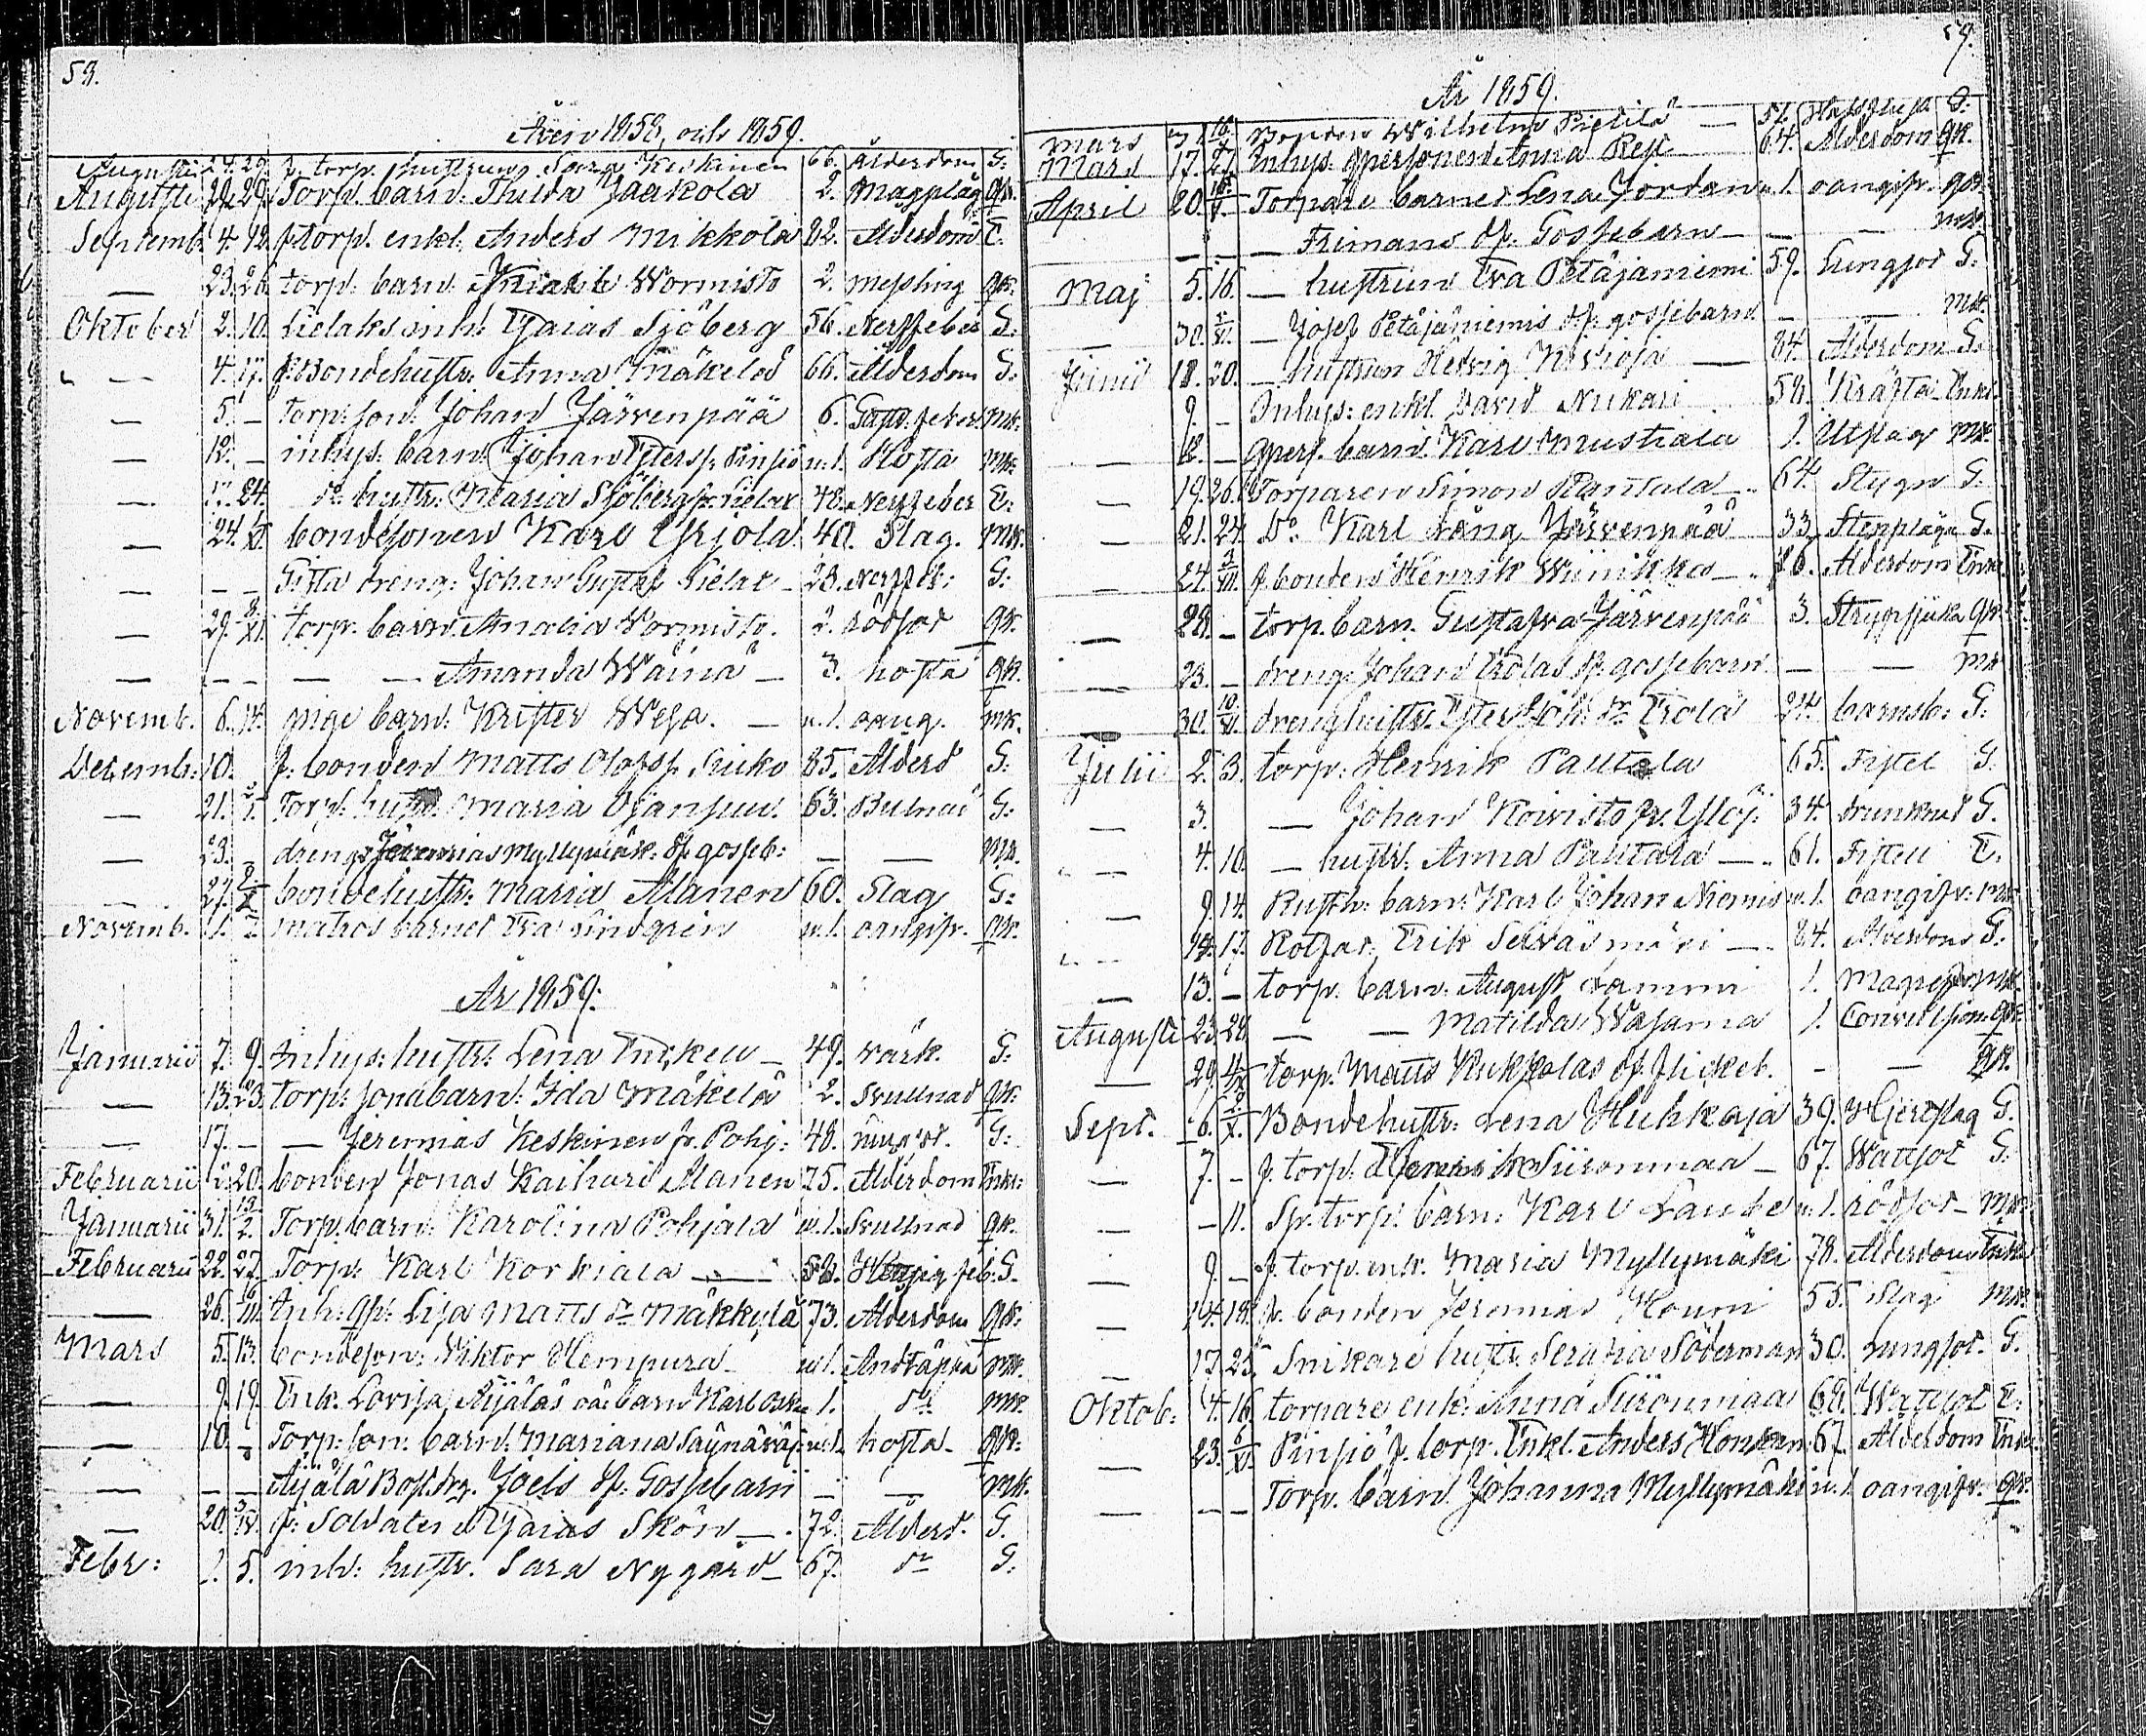 58.
Åren 1858, och 1859.
Augusti 24. 29. f. torp. hustrun Sara Keskinen 66. ålderdom G.
Augusti 29. Torp. barn. Thilda Jaakola 2. Magplåg qk.
Septemb. 4. 12. f. torp. enkl. Anders Mikkola 82. Alderdom E.
— 23. 26. torp. barn. Wormisto 2. messling qk.
Oktober 2. 10. Sielaks inh. Esaias Sjöberg 56. Nerffeber G.
— 4. 17. f. Bondehustr. Anna Mäkelä 66. Ålderdom G.
— 5. — Torp. son. Johan Järvenpää 6. feber mk.
— 12. — inhys. barn. Johan Pinsiö u. 1. Hosta mk.
— 17. 24. Do hustr. Maria Sjöberg fr. Sielax 48. Nerffeber E.
— 24. XI. bondesonen Karl Yrjola 40. Slag. mk.
— — — Gifta dreng. Johan Gustaf Sielax 23. Nerffeb: G:
— 29. 8/XI. torp. barn. Amalia Wormisto. 2. rödsot qk.
— — — — — Amanda Wäinä — 3. hosta qk.
Novemb. 6. 14. pige barn. Krister Wesa. — u. 1. oang. mk.
Decemb: 10. f. bonden Matts Olofss. Suiko 85. Ålderd G:
— 21. Torp. hustr. Maria Ojansuu. 63. Bulnad G:
— 23. — drengs Jeremias Myllymäk: df. gosseb: — — mk.
— 27. bondehustr: Maria Alanen 60. Slag G:
Novemb. 1. matros barnet Eva Lindgren u. 1. oangifv. qk.
År 1859.
Januarii 7. 9. Inhys: hustr: Lena Tusken — 49. värk. G:
— 13. 23. torp: sonabarn: Ida Mäkelä 2. Svullnad qk:
— 17. — — Jeremias Keskinen fr. Pohj: 48. G:
Februarii 12. 20. bonden Jonas Kaihari Alanen 75. Ålderdom Enkl:
Januarii 31. 13/2. Torp. barn: Karolina Pohjala u. 1. Svullnad qk.
Februarii 22. 27. Torp: Karl Korkiala — 58. feb: G.
— 26. III. Inh: qp: Lisa Matts dr Mäkkylä 73. Ålderdom qk:
Mars 5. 13. bondeson: Viktor Hempura — u 1. Andtäppa mk.
— 9. 19. Enk. Lovisa Äijäläs oä. barn Karl Osk. 1. do mk.
— 10. — Torp: son: barn: Mariana u: 1. hosta — qk:
— — — Äijälä Bost. drg. Joels df. Gossebarn — — mk.
— 20. 3/IV. f. Soldaten Esaias Skön — 72. Ålderd. G.
Febr: 1. 5. inh: hustr. Sara Nygård — 67. do G:
59.
År 1859.
Mars Bonden Wilhelm Pietilä — 51. G.
Mars 17. 27. Inhys. qpersonen Anna Resi 64. Ålderdom qk.
April 20. Torpare barnet Lena Jordan u 1. oangifv. qk.
— — — Frimans df. Gossebarn — — — mk.
Maj 5. 16. — hustrun Eva Petäjäniemi 59. Lungsot G:
— 30. — Josef Petäjäniemis df. gossebarn — — mk.
Junii 18. 20. — hustrun Hedvig Kivioja — 84. Ålderdom G:
9. — Inhys: enkl. David Nukari 58. Kräfta Enkl.
— 12. — qpers. barn Karl Mustiala 1. Utslag mk
— 19. 26. Torparen Simon Rantala — 64. Stygn G:
— 21. 24. Do Karl Lång Järvenpää 33. Stenplåga G.
— 24. 3/VII. f. bonden Henrik Wiinikka — 76. Ålderdom Enkl.
— 28. — torp. barn. Gustafva Järvenpää 3. Strypsjuka qk
— 23. — dreng Johan Erolas df. gossebarn — — mk
— 30. drenghustr. Ester Joh: dr Erola 24. barnsb: G:
Julii 2. 3. torp: Henrik Pautala 65. Fistel G.
— 3. — Johan Koivisto fr. Ylöj: 34. drunknad G.
— 4. 10. — hustr: Anna Pautala — 61. Fisteli E:
— 9. 14. Rusth: barn: Karl Johan Niemis u. 1. oangifv. mk
— 14. 17. Rotfat: Erik Selväsmäki — 84. Ålderdom G:
— 13. — torp. barn. August Lammi 1. mk.
Augusti 23. 28. — — Matilda Wasama 1. Convulsion: qk.
— 29. 4/IX torp. Matts Kukkolas df. flickeb. — — qk.
Sept. 6. Bondehustr: Lena Huhkaja 39. Hjertslag G.
— 7. — f. torp: Henrik Siironmaa — 67. Wattsot G:
— — 11. Sp. torp. barn: Karl Laude u. 1. rödsot — mk
— 9. — f. torp. enk. Maria Myllymäki 78. Ålderdom Enka
— 14. 18. f. bonden Jeremias Houni 55. Slag mk.
— 17. 25. Snikare hustr. Serafia Söderman 30. Lungsot. G.
Oktob: 4. 16. torpare enk: Anna Siironmaa 68. Wattsot E:
— 23. 6/XI. Pinsiö f. torp. Enkl. Anders Honkan 67. Ålderdom Enkl.
— — — Torp. barn Johanna Myllymäki u. 1. oangifv. qk.